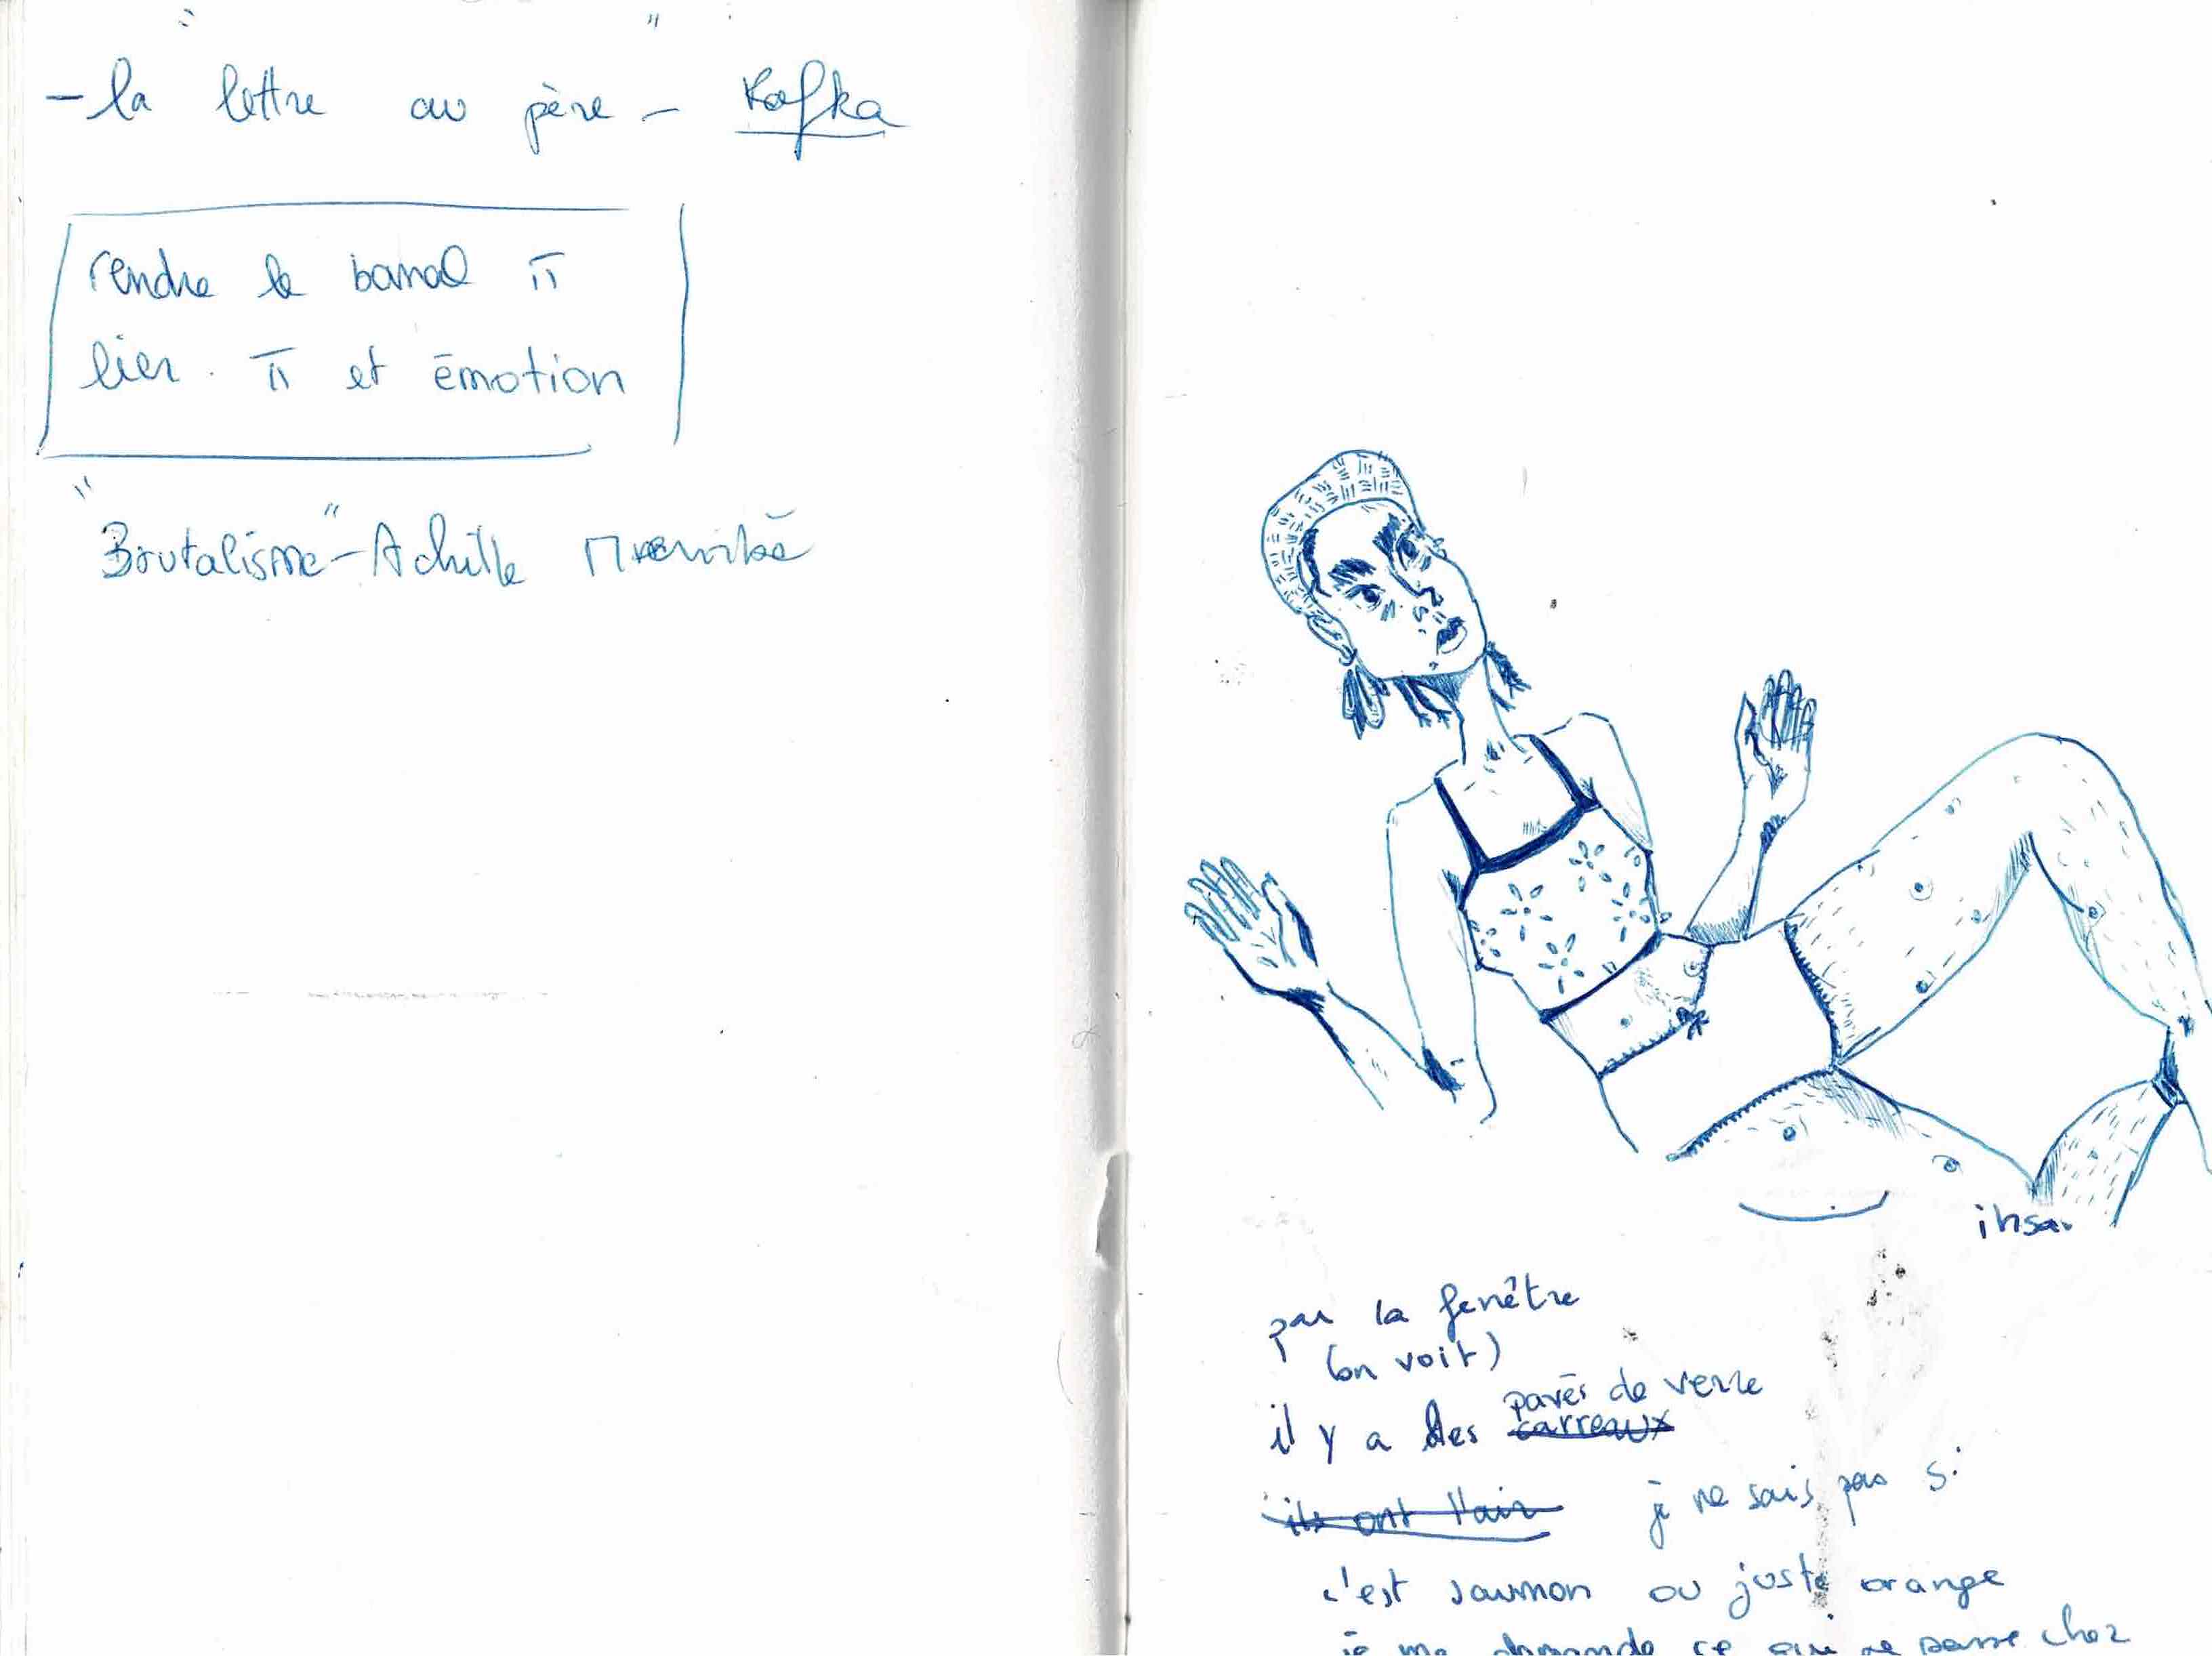 - "la lettre au père" - Kafka
rendre le banal π
lier π et émotion
"Brutalisme" - Achille
ihsa
par la fenêtre
(on voit)
pavés de verre
il y a des carreaux
ils ont l'air je ne sais pas si
c'est saumon ou juste orange
je me demande ce qui se passe chez